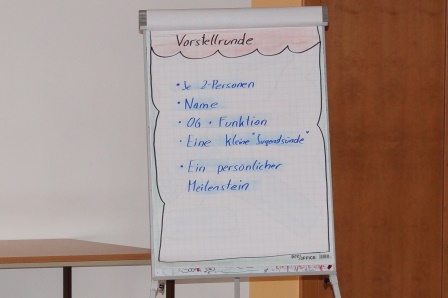 Vorstellrunde
• Je 2-Personen
• Name
• OG + Funktion
• Eine kleine "Jugendsünde"
• Ein persönlicher
Meilenstein